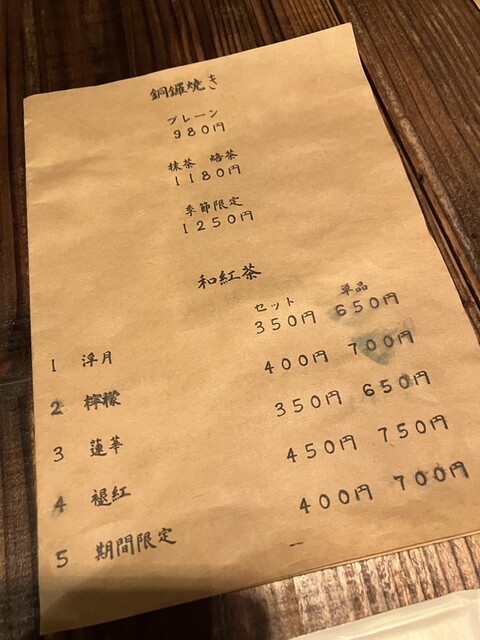 銅鑼焼き
プレーン
980円
抹茶 焙茶
1180円
季節限定
1250円
和紅茶
セット 単品
1 浮月 350円 650円
2 檸檬 400円 700円
3 蓮華 350円 650円
4 褪紅 450円 750円
5 期間限定 400円 700円